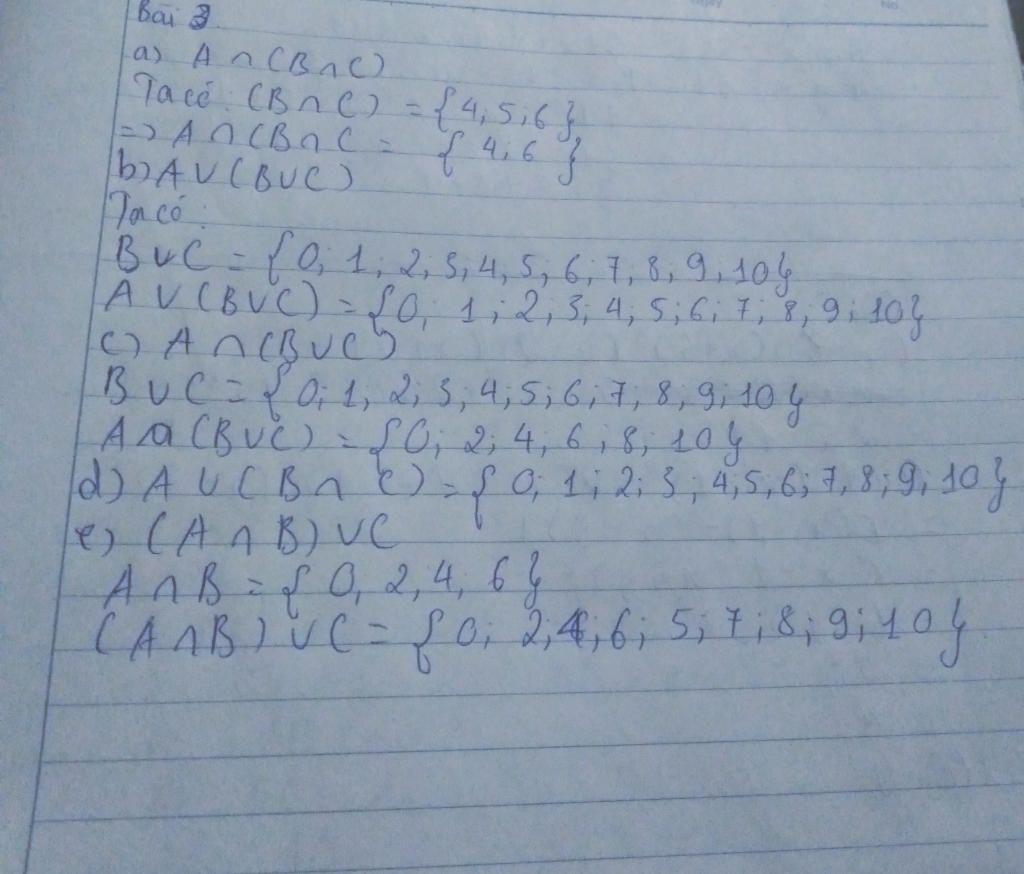 Bài 3
a) A ∩ (B ∩ C)
Ta có: (B ∩ C) = {4; 5; 6}
=> A ∩ (B ∩ C = {4; 6}
b) A ∪ (B ∪ C)
Ta có:
B ∪ C = {0; 1; 2; 3; 4; 5; 6; 7; 8; 9; 10}
A ∪ (B ∪ C) = {0; 1; 2; 3; 4; 5; 6; 7; 8; 9; 10}
c) A ∩ (B ∪ C)
B ∪ C = {0; 1; 2; 3; 4; 5; 6; 7; 8; 9; 10}
A ∩ (B ∪ C) = {0; 2; 4; 6; 8; 10}
d) A ∪ (B ∩ C) = {0; 1; 2; 3; 4; 5; 6; 7; 8; 9; 10}
e) (A ∩ B) ∪ C
A ∩ B = {0, 2, 4, 6}
(A ∩ B) ∪ C = {0; 2; 4; 6; 5; 7; 8; 9; 10}